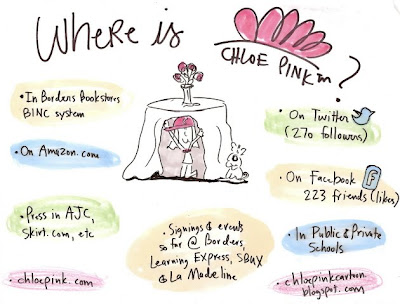 Where is
CHLOE PINK TM ?
• In Borders Bookstores
BINC system
• On Amazon.com
• Press in AJC,
Skirt.com, etc
• chloepink.com
• Signings & events
so far @ Borders,
Learning Express, SBUX
& La Madeline
• On Twitter
(270 followers)
• On Facebook
f
223 friends (likes)
• In Public & Private
Schools
• chloepinkcartoon.
blogspot.com